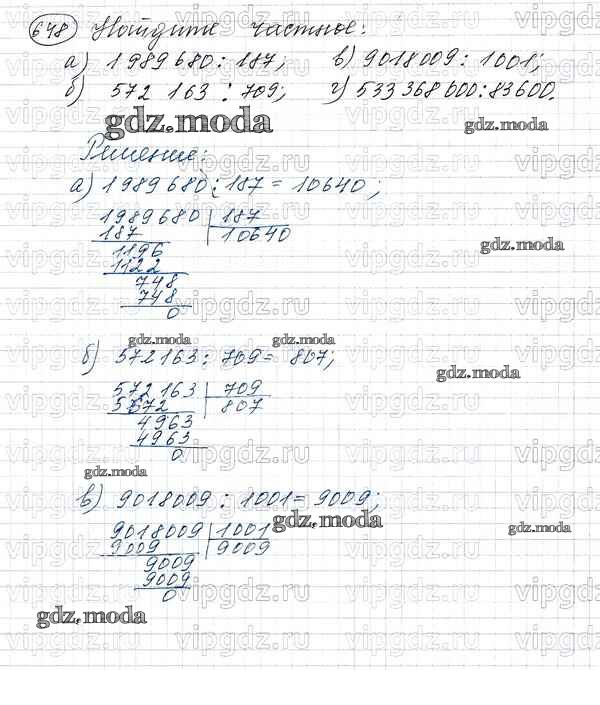 648 Найдите частное:
а) 1989680 : 187; в) 9018009 : 1001;
б) 572 163 : 709; г) 533 368 000 : 83600.
gdz.moda gdz.moda
Решение:
а) 1989680 : 187 = 10640;
1989680 187
187 10640
1196
1122
748
748
0
gdz.moda
gdz.moda gdz.moda
б) 572163 : 709 = 807;
gdz.moda
572163 709
5672 807
4963
4963
0
gdz.moda
в) 9018009 : 1001 = 9009;
gdz.moda gdz.moda
9018009 1001
9009 9009
9009
9009
0
gdz.moda
vipgdz.ru